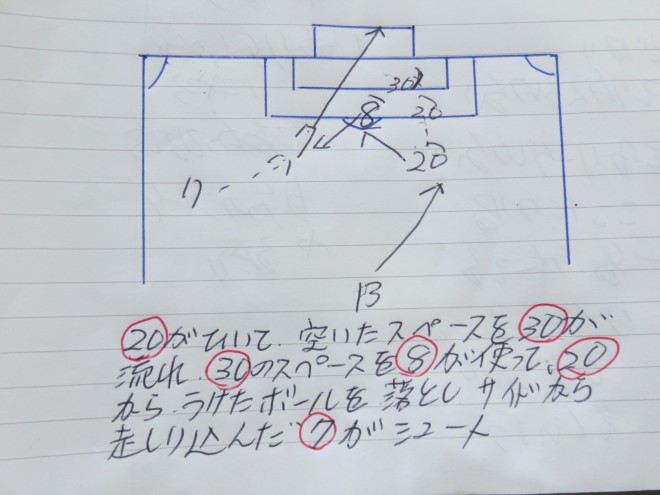 30
8
20
7
7
20
7
13
20がひいて、空いたスペースを30が
流れ、30のスペースを8が使って、20
から、うけたボールを落とし サイドから
走り込んだ7がシュート